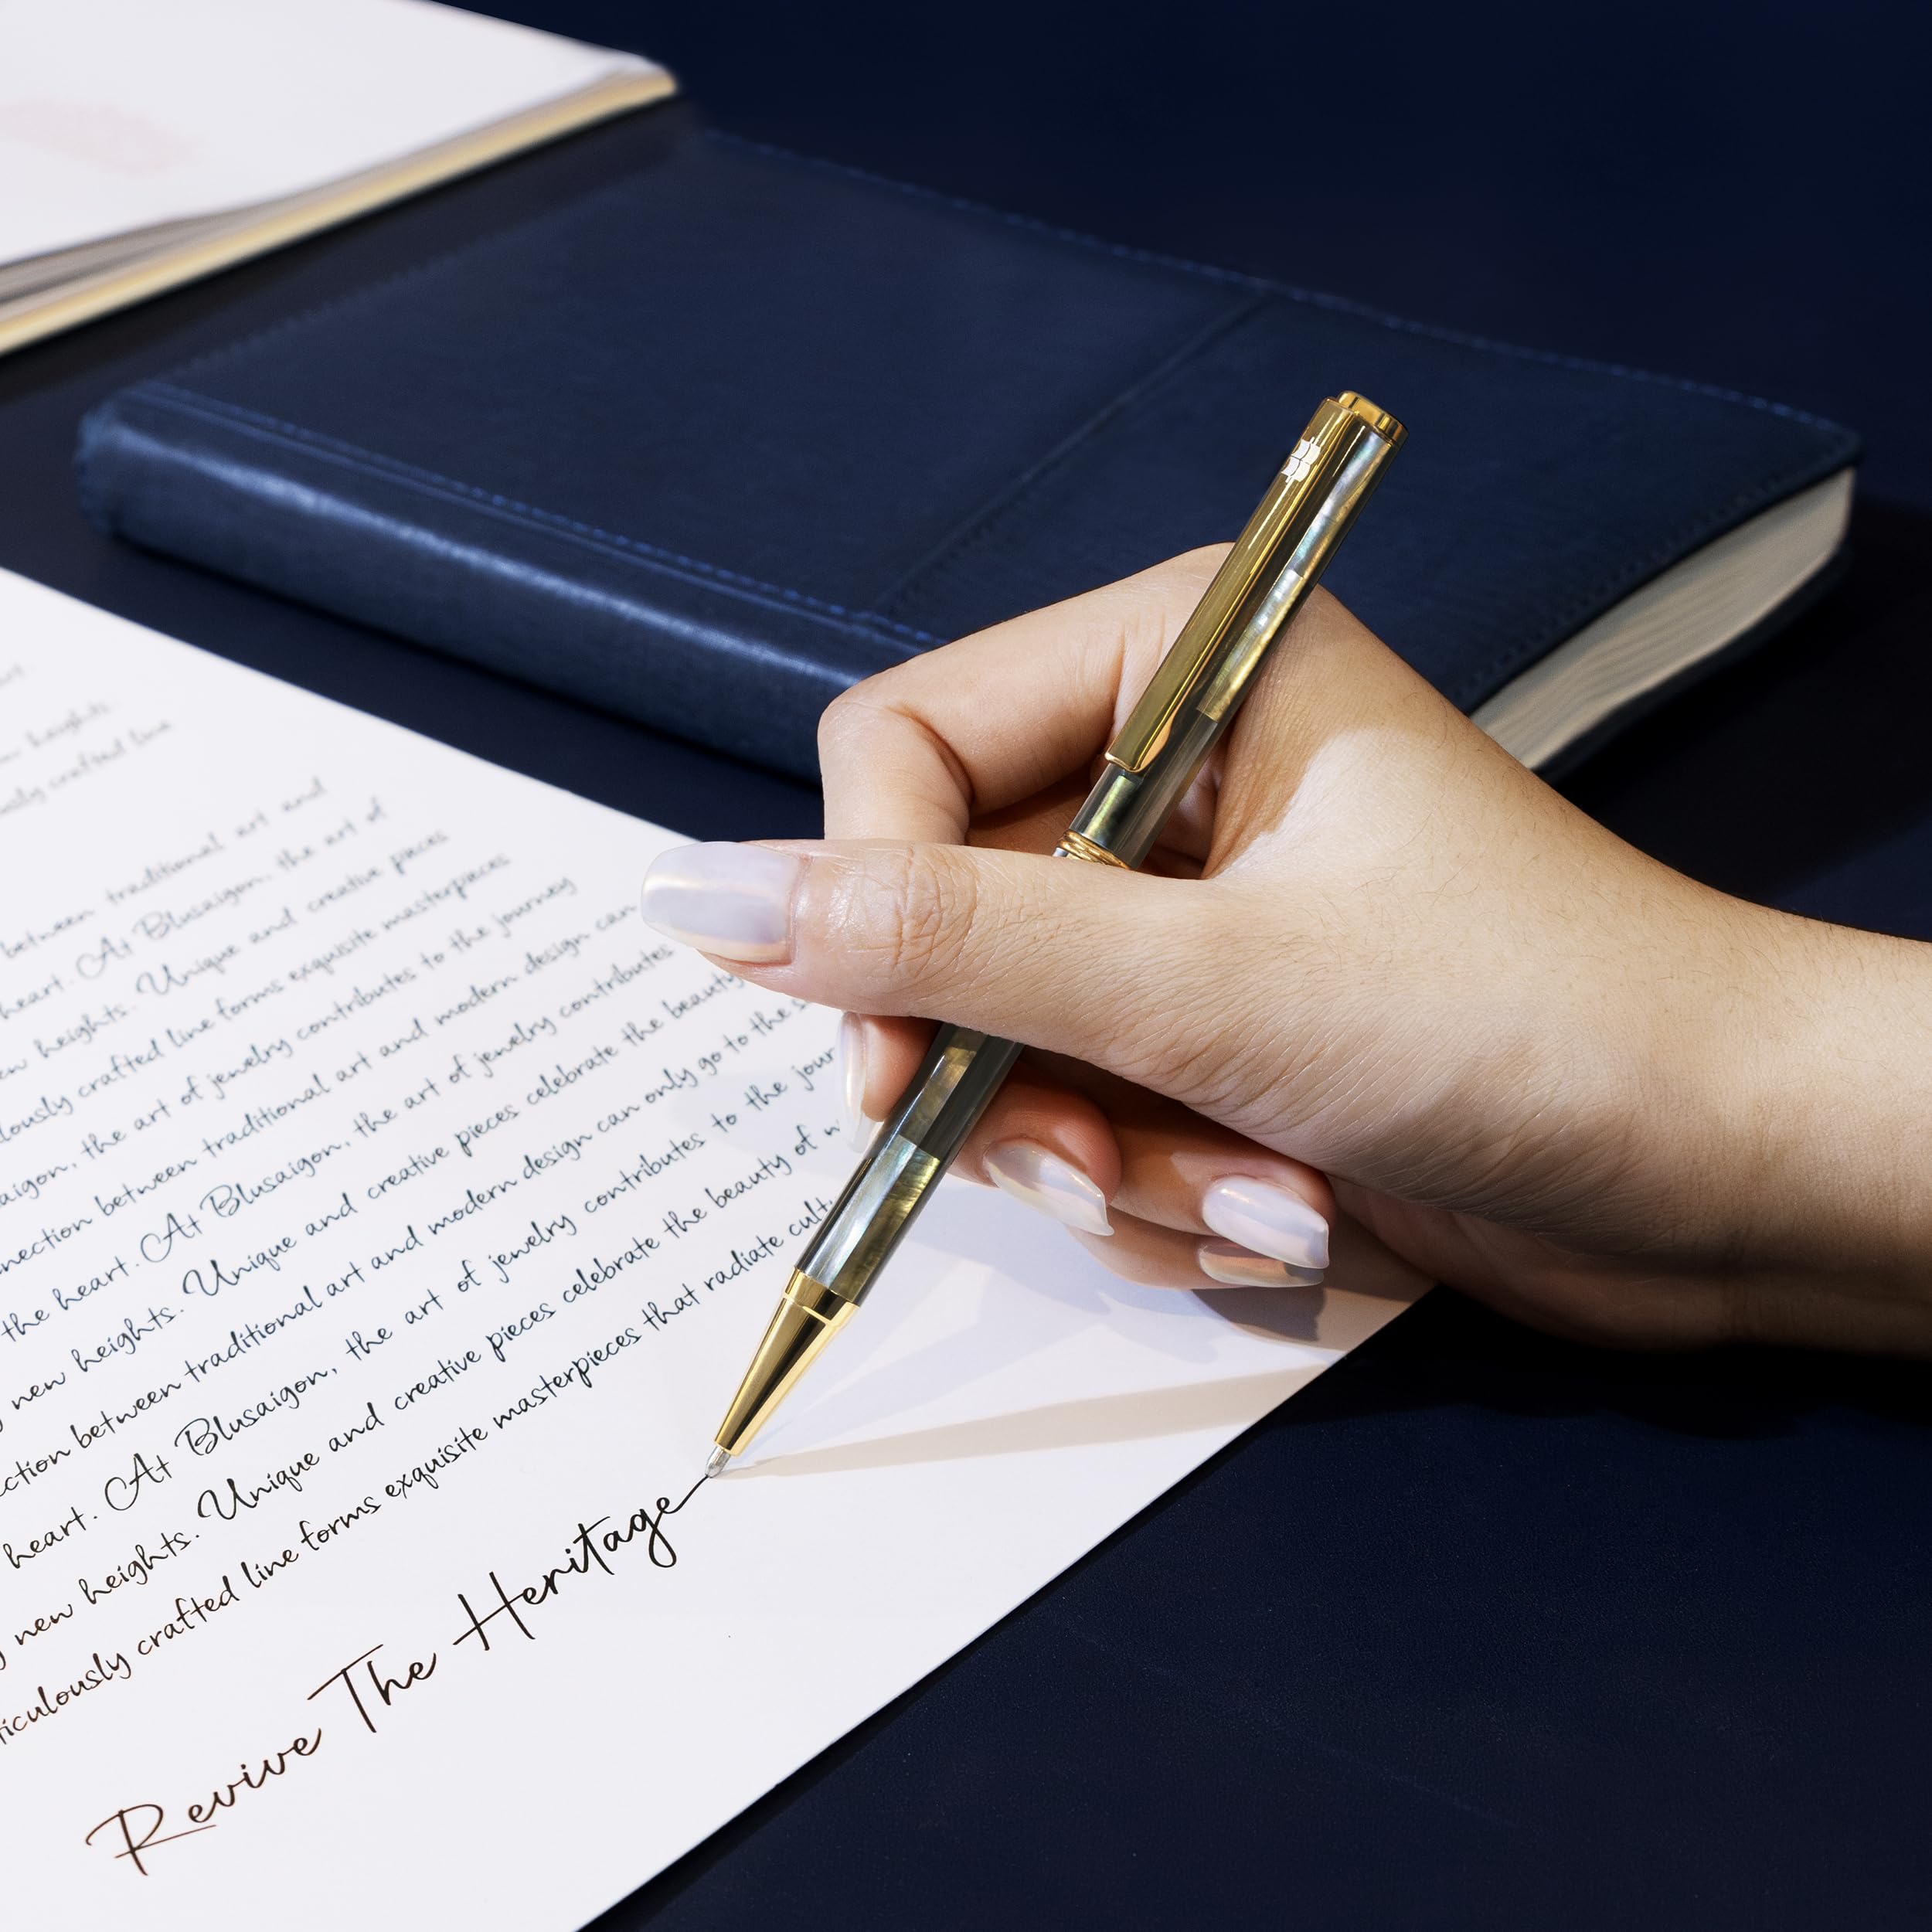 heights.
crafted line
between traditional art and
heart. At Blusaigon, the art of
new heights. Unique and creative pieces
crafted line forms exquisite masterpieces
the art of jewelry contributes to the journey
between traditional art and modern design can
the heart. At Blusaigon, the art of jewelry contributes
new heights. Unique and creative pieces celebrate the beauty
between traditional art and modern design can only go to the
heart. At Blusaigon, the art of jewelry contributes to the jour
new heights. Unique and creative pieces celebrate the beauty of
crafted line forms exquisite masterpieces that radiate cult
Revive The Heritage